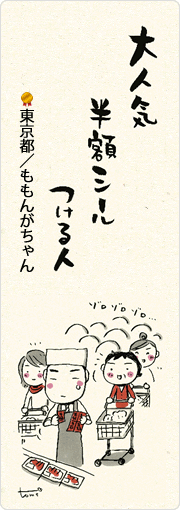 大人気
半額シール
つける人
東京都／ももんがちゃん
ゾロゾロゾロ…